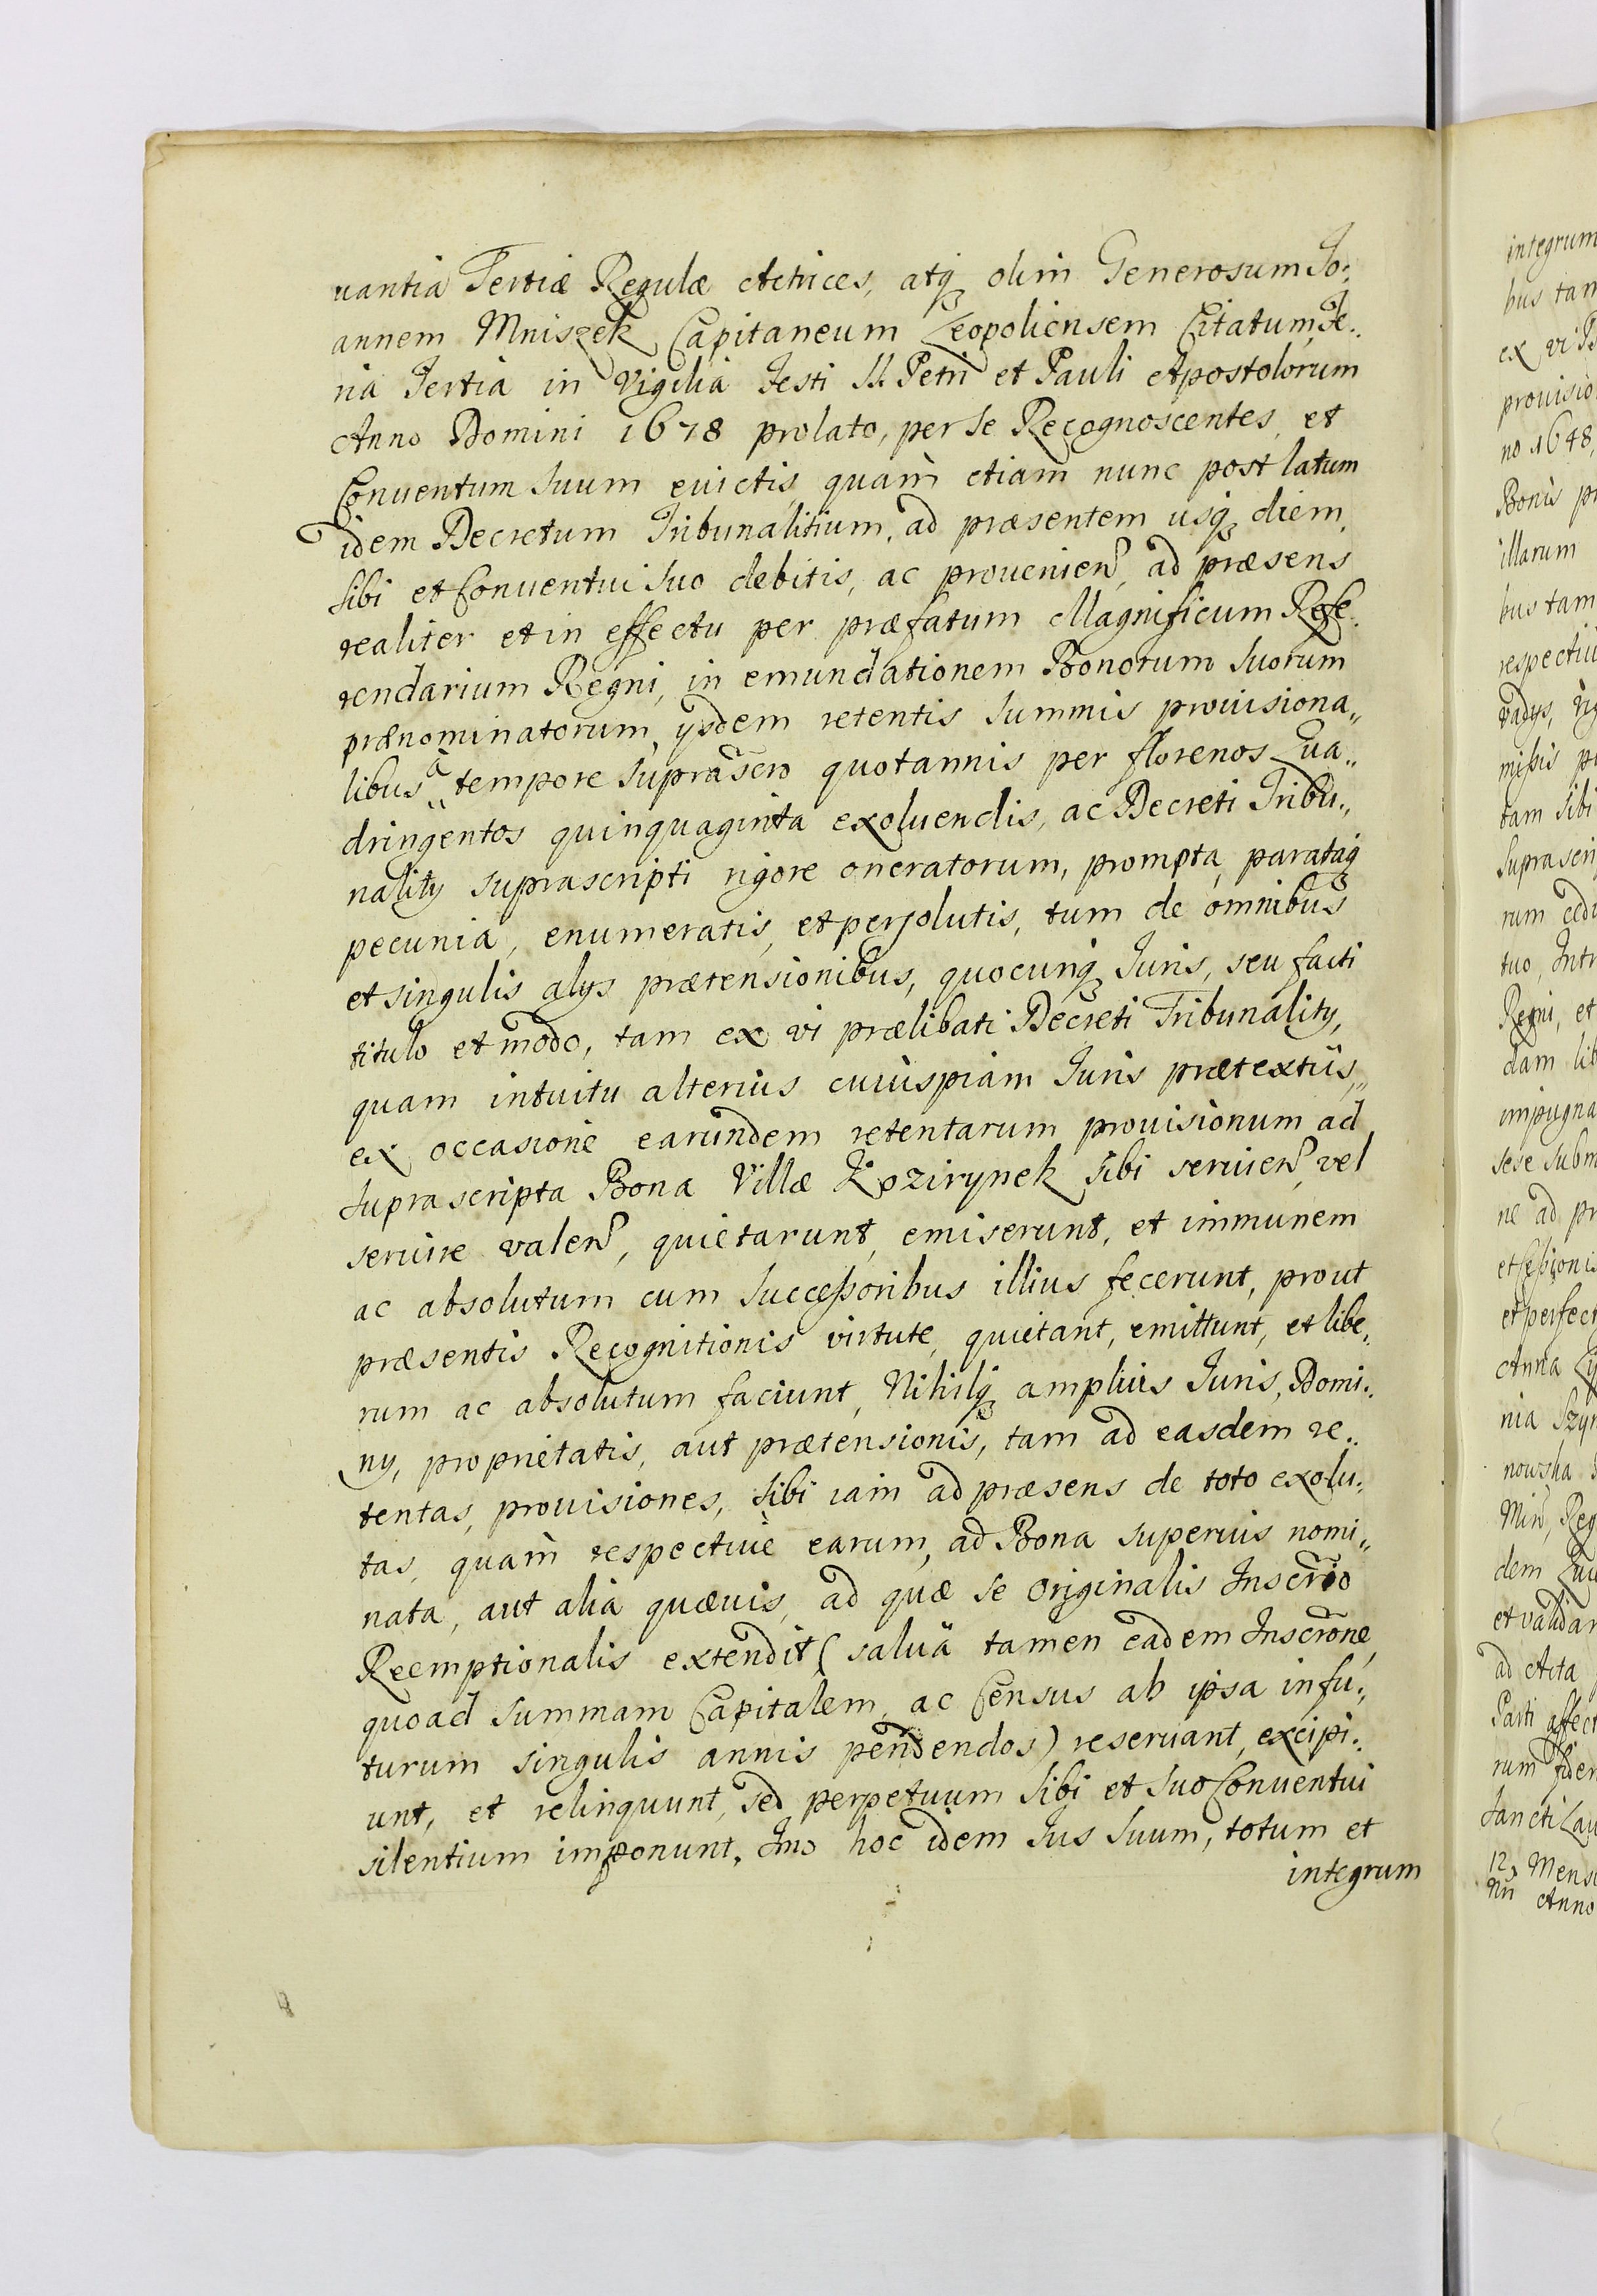 uantia Tertiæ Regulæ Actrices, atq₃ olim Generosum Jo:
annem Mniszek Capitaneum Leopoliensem Citatum, Fe:
ria Tertia in Vigilia Festi SS. Petri et Pauli Apostolorum
Anno Domini 1678 prolato, per se Recognoscentes, et
Conuentum Suum euictis, quam etiam nunc post latum
idem Decretum Tribunalitium, ad præsentem usq₃ diem,
Sibi et Conuentui Suo debitis, ac prouenien, ad præsens
realiter et in effectu per præfatum Magnificum Refe:
rendarium Regni, in emundationem Bonorum Suorum
prænominatorum, ijsdem retentis Summis prouisiona„
libus à tempore Suprascro quotannis per florenos Qua„
dringentos quinquaginta exoluendis, ac Decreti Tribu:,
nalitij suprascripti rigore oneratorum, prompta, parataq₃
pecunia, enumeratis, et persolutis, tum de omnibus
et singulis alijs prætensionibus, quocunq₃ Juris, seu facti
titulo et modo, tam ex vi prælibati Decreti Tribunalitij,
quam intuitu alterius cuiuspiam Juris prætextus,„
ex occasione earundem retentarum prouisionum ad
Suprascripta Bona Villæ Kozirynek Sibi seruien, vel
seruire valen, quietarunt, emiserunt, et immunem
ac absolutum cum Successoribus illius fecerunt, prout
præsentis Recognitionis virtute, quietant, emittunt, et libe:
rum ac absolutum faciunt, Nihilq₃ amplius Juris, Domi:
nij, proprietatis, aut prætensionis, tam ad easdem re:
tentas, prouisiones, Sibi iam ad præsens de toto exolu:
tas, quam respectiuè earum, ad Bona superius nomi„
nata, aut alia quæuis, ad quæ se originalis Inscrio
Reemptionalis extendit (salua tamen eadem Inscrone,
quoad Summam Capitalem, ac Census ab ipsa in fu:,
turum singulis annis pendendos) reseruant, excipi:
unt, et relinquunt, sed perpetuum Sibi et Suo Conuentui
silentium imponunt, Imo hoc idem Jus Suum, totum et
integrum
integrum
bus tam
ex vi
prouisio
no 1648,
Bonis
illarum
bus tam
respectiu
vadijs,
missis
tam Sibi
Suprascri
rum
tuo,
Regni, et
dam lib
impugna
sese Subm
ne ad pr
et Cessionis
et perfect
Anna
nia Szy
nowska
Min, Reg
dem
et validam
ad Acta
Parti affect
rum fidem
Sancti Lau
12. Mens
Anno